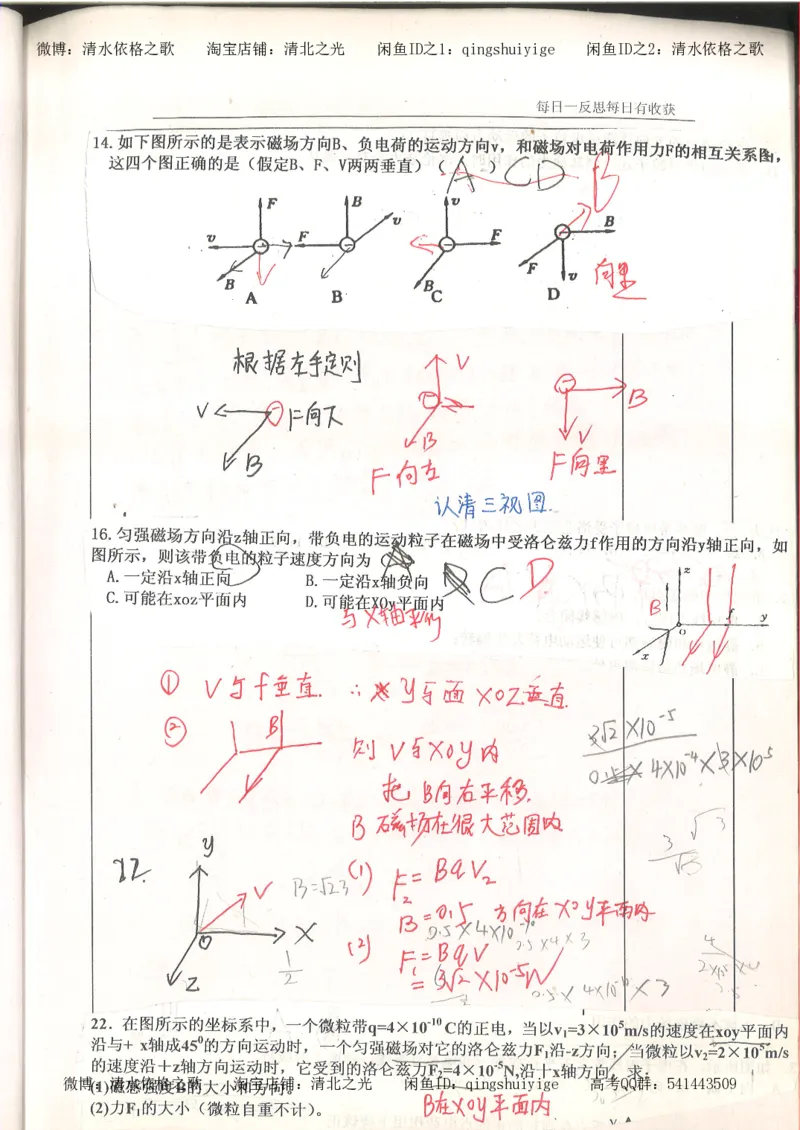 微博：清水依格之歌 淘宝店铺：清北之光 闲鱼ID之1：qingshuiyige 闲鱼ID之2：清水依格之歌
每日一反思每日有收获
14.如下图所示的是表示磁场方向B、负电荷的运动方向v，和磁场对电荷作用力F的相互关系图，
这四个图正确的是（假定B、F、V两两垂直）（ A ） CD B
F v B A
B v F B
v F B C
B F v D
向里
根据左手定则
V F向下 B
V B F向左
B V F向里
认清三视图.
16.匀强磁场方向沿z轴正向，带负电的运动粒子在磁场中受洛仑兹力f作用的方向沿y轴正向，如
图所示，则该带负电的粒子速度方向为（ ） C D
A.一定沿x轴正向 B.一定沿x轴负向
C.可能在xoz平面内 D.可能在XOy平面内
z B f y o x
与X轴平行
① V与f垂直. ∴ y与面XOZ垂直
② B 则V与XOY内
把B向右平移.
B磁场在很大范围内
3√2×10⁻⁵
4×10⁻⁴×3×10⁵
√3
3
√3
22.
y V X O Z
B=√23
(1) F₂=BqV₂
B=0.5 方向在XOY平面内
0.5×4×10⁻¹⁰
0.5×4×3
(2) F₁=BqV
=3√2×10⁻⁵N
0.5×4×10⁻¹⁰×3
1
2
22．在图所示的坐标系中，一个微粒带q=4×10⁻¹⁰ C的正电，当以v₁=3×10⁵m/s的速度在xoy平面内
沿与+ x轴成45⁰的方向运动时，一个匀强磁场对它的洛仑兹力F₁沿-z方向；当微粒以v₂=2×10⁵m/s
的速度沿＋z轴方向运动时，它受到的洛仑兹力F₂=4×10⁻⁵N,沿十x轴方向。求：
(1)磁感强度B的大小和方向。
微博：清水依格之歌 淘宝店铺：清北之光 闲鱼ID：qingshuiyige 高考QQ群：541443509
(2)力F₁的大小（微粒自重不计）。
B在XOY平面内
y